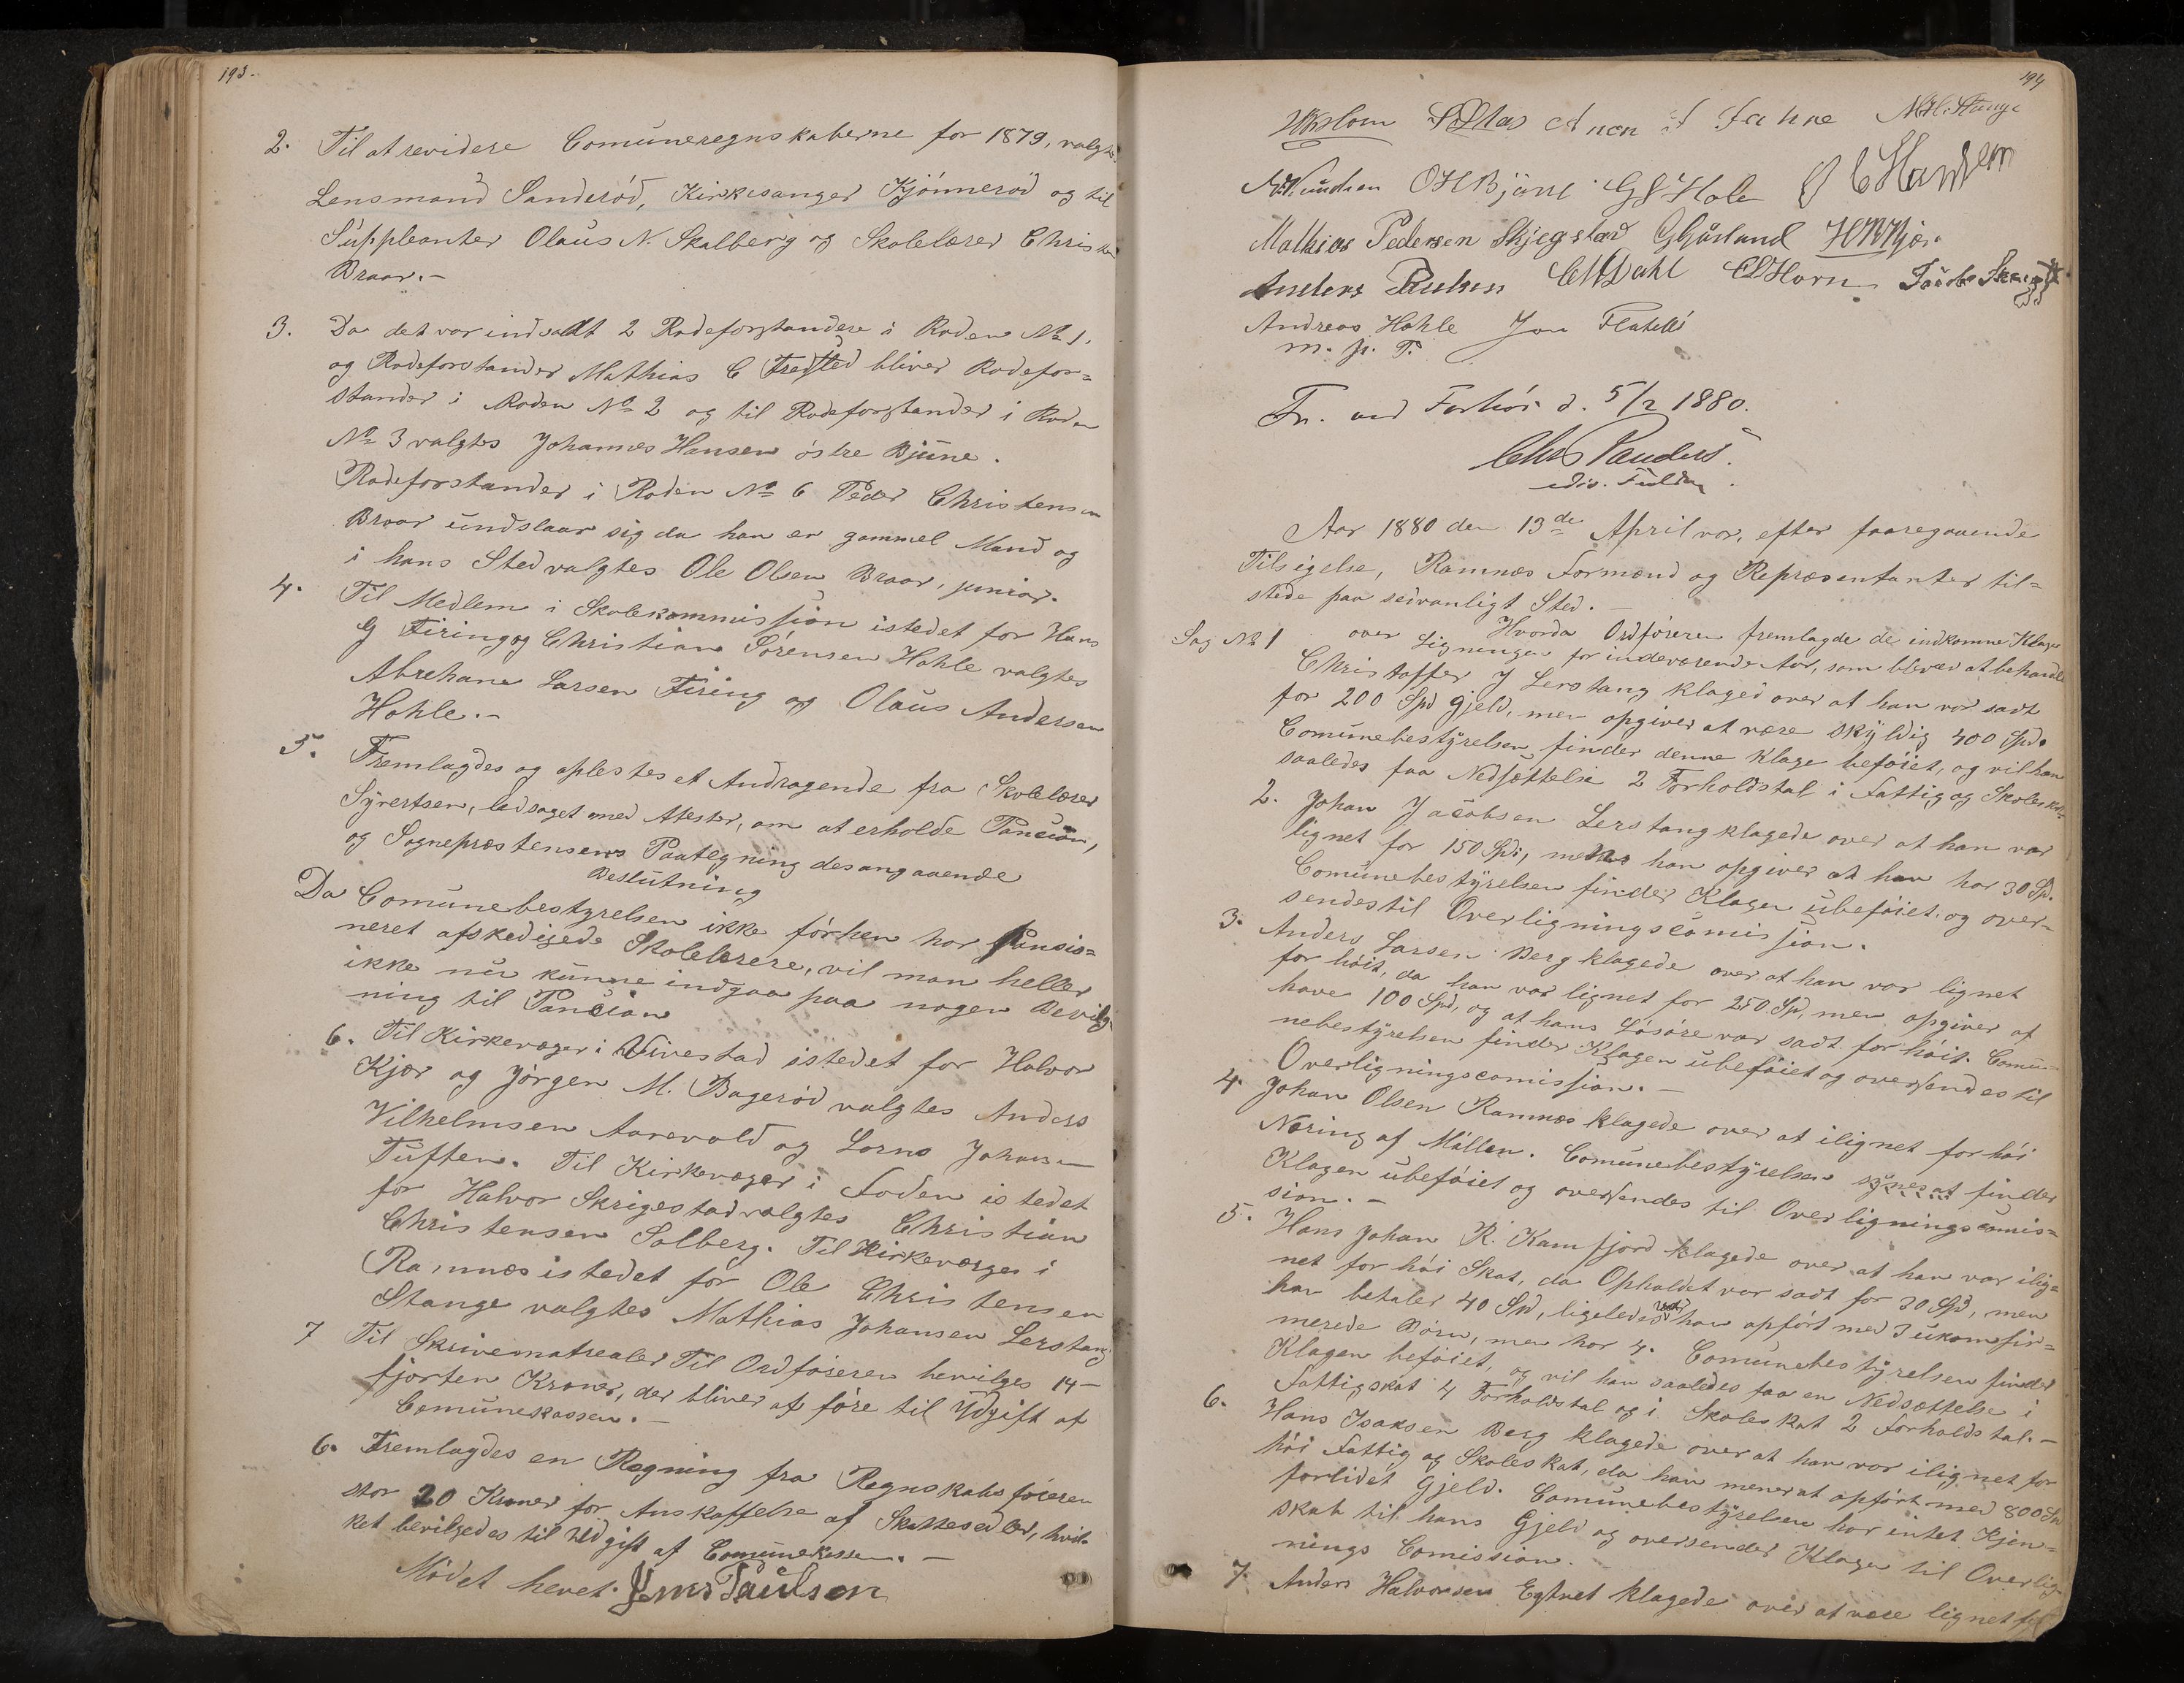 193.
2. Til at revidere Comuneregnskaberne for 1879, valgtes
Lensmand Sanderød, Kirkesanger Kjønnerød og til
Suppleanter Olaus N. Skalberg og Skolelærer Christen
Braar.-
3. Da det var indvalt 2 Rodeforstandere i Roden No 1.
og Rodeforstander Mathias C Fredsted bliver Rodefor=
stander i Roden No 2 og til Rodeforstander i Roden
No 3 valgtes Johannes Hansen östre Bjune.
Rodeforstander i Roden No 6 Peder Christensen
Braar undslaar sig da han er gammel Mand og
i hans Sted valgtes Ole Olsen Braar, junior.
4. Til Medlem i Skolekommissjion istedet for Hans
G Firing og Christian Sörensen Hohle valgtes
Abreham Larsen Firing og Olaus Andersen
Hohle.-
5. Fremlagdes og oplestes et Andragende fra Skolelærer
Syvertsen, ledsaget med Atester, om at erholde Pancion,
og Sogneprestensens Paategning desangaaende
Beslutning
Da Comunebestyrelsen ikke förhen har Pensio=
neret afskedigede Skolelærere, vil man heller
ikke nu kunne indgaa paa nogen Bevilg=
ning til Pancion
6. Til Kirkeværger i Vivestad istedet for Halvor
Kjær og Jörgen M. Bagerød valgtes Anders
Vilhelmsen Aarevold og Lorns Johansen
Tuften. Til Kirkeværger i Foden istedet
for Halvor Skrigestad valgtes Christian
Christensen Solberg. Til Kirkeværger i
Ramnæs istedet for Ole Christensen
Stange valgtes Mathias Johansen Lerstang
7 Til Skrivematrealer Til Ordföreren bevilges 14-
fjorten Kroner, der bliver at före til Udgift af
Comunekassen.-
6. Fremlagdes en Regning fra Regnskabsföreren
stor 20 Kroner for Anskaffelse af Skattesedler, hvil=
ket bevilgedes til Udgift af Comunekassen.-
Mödet hevet. Jens Paulsen
194
M.H. Stange
OHBjune GSHole C Hansen
Mathias Pedersen Skjegstad GHusland
Anders Paulsen CMDahl Horn
Andreas Hohle
m. p. P.
d. 5/2 1880.
Aar 1880 den 13de April var, efter foregaaende
Tilsigelse, Ramnæs Formænd og Repræsentanter til=
stede paa sedvanligt Sted.-
Sag No 1 Hvorda Ordföreren fremlagde de indkomne Klager
over Ligningen for indeværende Aar, som blever at behandle
Christoffer J Lerstang klaged over at han var sadt
for 200 Spd Gjeld, men opgiver at være skyldig 400 Spd.
Comunebestyrelsen finder denne Klage beföiet, og vil han
saaledes faa Nedsættelse 2 Forholdstal i Fattig og Skoleskat
2. Johan Jacobsen Lerstang klagede over at han var
lignet for 150 Spd, mens han opgiver at han har 30 Sp.
Comunebestyrelsen finder Klagen ubeföiet, og over=
sendes til Overligningscomissjion.
3. Anders Larsen Berg klagede over at han var lignet
for höit, da han var lignet for 250 Sp, men opgiver at
have 100 Spd, og at hans Lösöre var sadt for höit. Comu=
nebestyrelsen finder Klagen ubeföiet og oversendes til
Overligningscomission.-
4. Johan Olsen Ramnæs klagede over at ilignet for höi
Næring af Möllen. Comunebestyrelsen synes at finder
Klagen ubeföiet og oversendes til Overligningscomis=
sion.-
5. Hans Johan R. Kamfjord klagede over at han var ilig=
net for höi Skat, da Opholdet var sadt for 30 Spd, men
han betaler 40 Spd, ligeledes var han opfört med 3 ukomfir=
merede Börn, men har 4. Comunebestyrelsen finder
Klagen beföiet, og vil han saaledes faa en Nedsættelse i
Fattigskat 4 Forholdstal og i Skoleskat 2 Forholdstal.-
6. Hans Isaksen Berg klagede over at han var ilignet for
höi Fattig og Skoleskat, da han mener at opfört med 800 Sp
forlidet Gjeld. Comunebestyrelsen har intet Kjen=
skab til hans Gjeld og oversender Klagen til Overlig=
nings Comission.-
7. Anders Halvorsen klagede over at være lignet for